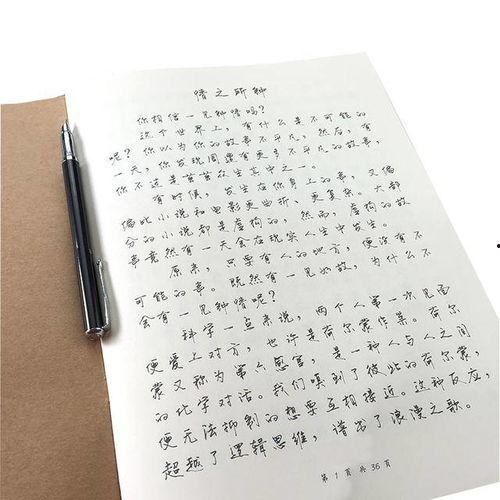 情之所钟
你相信一见钟情吗?
这个世界上,有什么是不可能的
呢?你以为你的故事不平凡,然后,有
一天,你发现周遭有更多不平凡的故事,
你不过是茫茫众生其中之一。
有时候,发生在你身上的事,又偏
偏比小说和电影更曲折、更复杂。大部
分的小说都是虚构的,然而,虚构的故
事竟然有一天会在现实人生中发生。
原来,只要有人的地方,便没有不
可能的事。既然有一见如故,为什么不
会有一见钟情呢?
科学一点来说,两个人第一次见面
便爱上对方,也许是荷尔蒙作祟。荷尔
蒙又称为第六感官,是一种人与人之间
的化学对话。我们嗅到了彼此的荷尔蒙,
便无法抑制的想要互相接近。这种反应,
超越了逻辑思维,谱写了浪漫之歌。
第 1 页 共 36 页